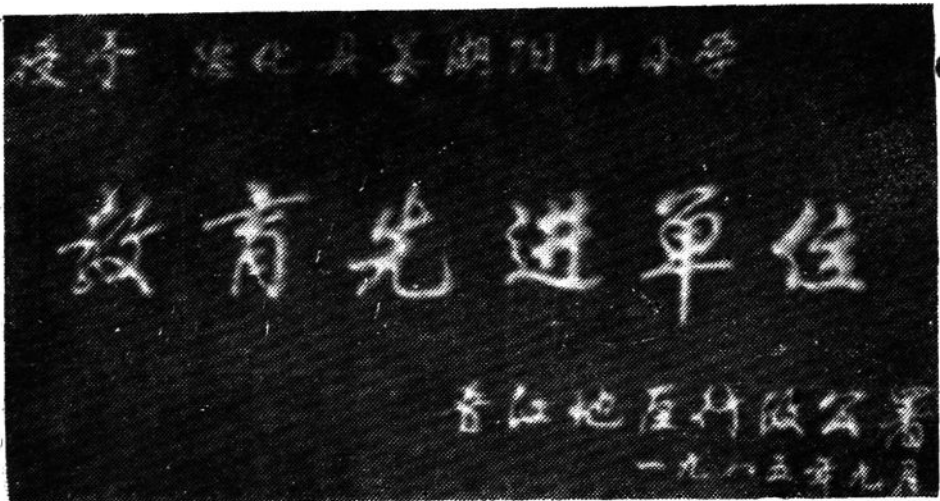 授予 德化县葛湖阳山小学
教育先进单位
晋江地区行政公署
一九八五年九月